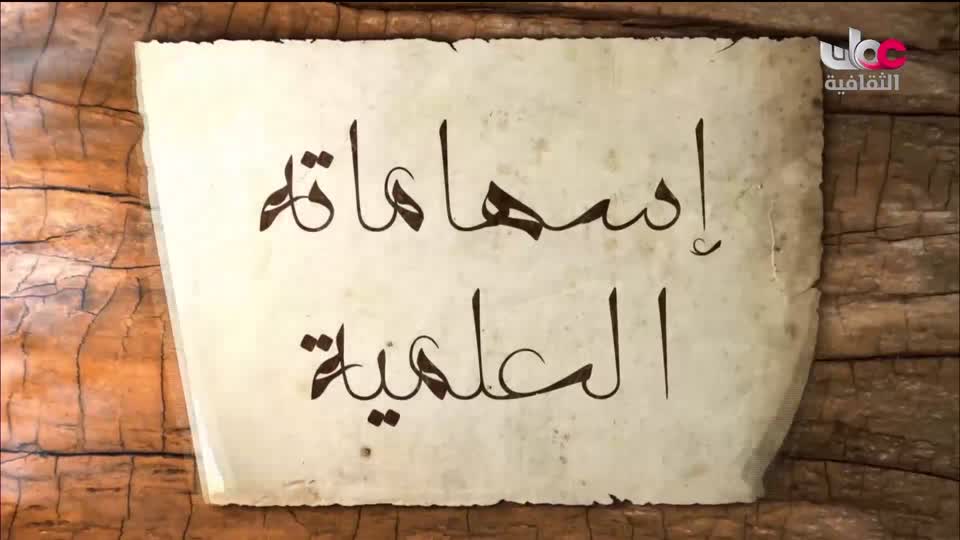 عمان
الثقافية
إسهاماته
العلمية